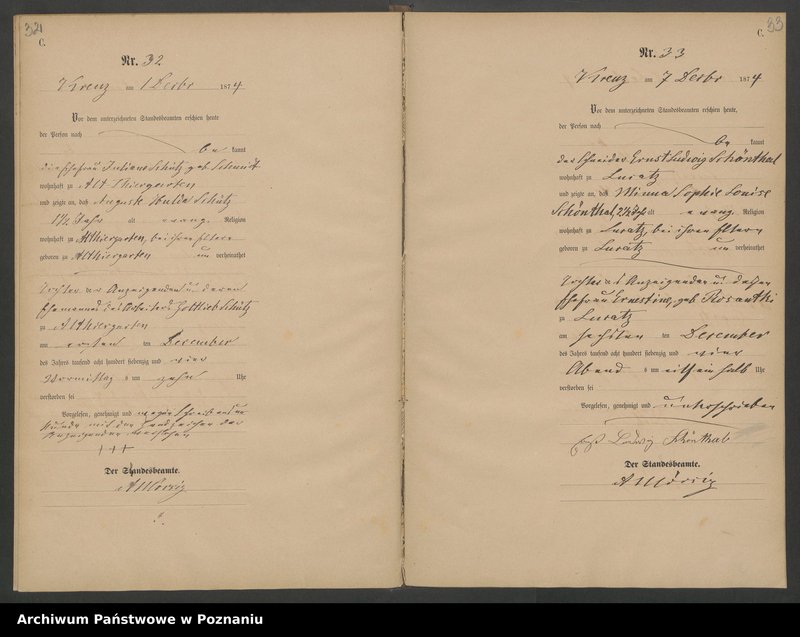 32
C.
Nr. 32
Kreuz am 1 Decbr 1874
Vor dem unterzeichneten Standesbeamten erschien heute
der Person nach
be kannt
die Ehefrau Juliane Schütz geb. Schmidt
wohnhaft zu Alt Thiergarten
und zeigte an, daß Auguste Hulda Schütz
1½ Jahr alt evang. Religion
wohnhaft zu Altthiergarten, bei ihren Eltern
geboren zu Altthiergarten un verheirathet
Tochter der Anzeigenden u. deren
Ehemannes des Arbeiters Gottlieb Schütz
zu Altthiergarten
am ersten ten December
des Jahrs tausend acht hundert siebenzig und vier
Vormittag s um zehn Uhr
verstorben sei
Vorgelesen, genehmigt und wegen Schreibensun
kunde mit dem Handzeichen der
Anzeigenden versehen
+++
Der Standesbeamte.
33
C.
Nr. 33
Kreuz am 7 Decbr 1874
Vor dem unterzeichneten Standesbeamten erschien heute,
der Person nach
be kannt
der Schneider Ernst Ludwig Schönthal
wohnhaft zu Lucatz
und zeigte an, daß Minna Sophie Louise
Schönthal, 2½ Jahr alt evang. Religion
wohnhaft zu Lucatz, bei ihren Eltern
geboren zu Lucatz un verheirathet
Tochter des Anzeigenden u. dessen
Ehefrau Ernestine, geb
zu Lucatz
am sechsten ten December
des Jahrs tausend acht hundert siebenzig und vier
Abend s um eilf ein halb Uhr
verstorben sei
Vorgelesen, genehmigt und unterschrieben
Ernst Ludwig Schönthal
Der Standesbeamte.
Archiwum Państwowe w Poznaniu